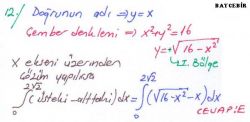 BAYCEBİR
12.) Doğrunun adı ⇒ y=x
Çember denklemi ⇒ x²+y²=16
y=+√16-x²
↳I. Bölge
X ekseni üzerinden
çözüm yapılırsa
∫₀^2√2 (üstteki-alttaki)dx = ∫₀^2√2 (√16-x² -x)dx
CEVAP:E